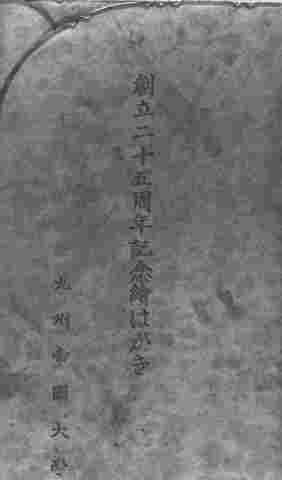 創立二十五周年記念繪はがき
九州帝國大學